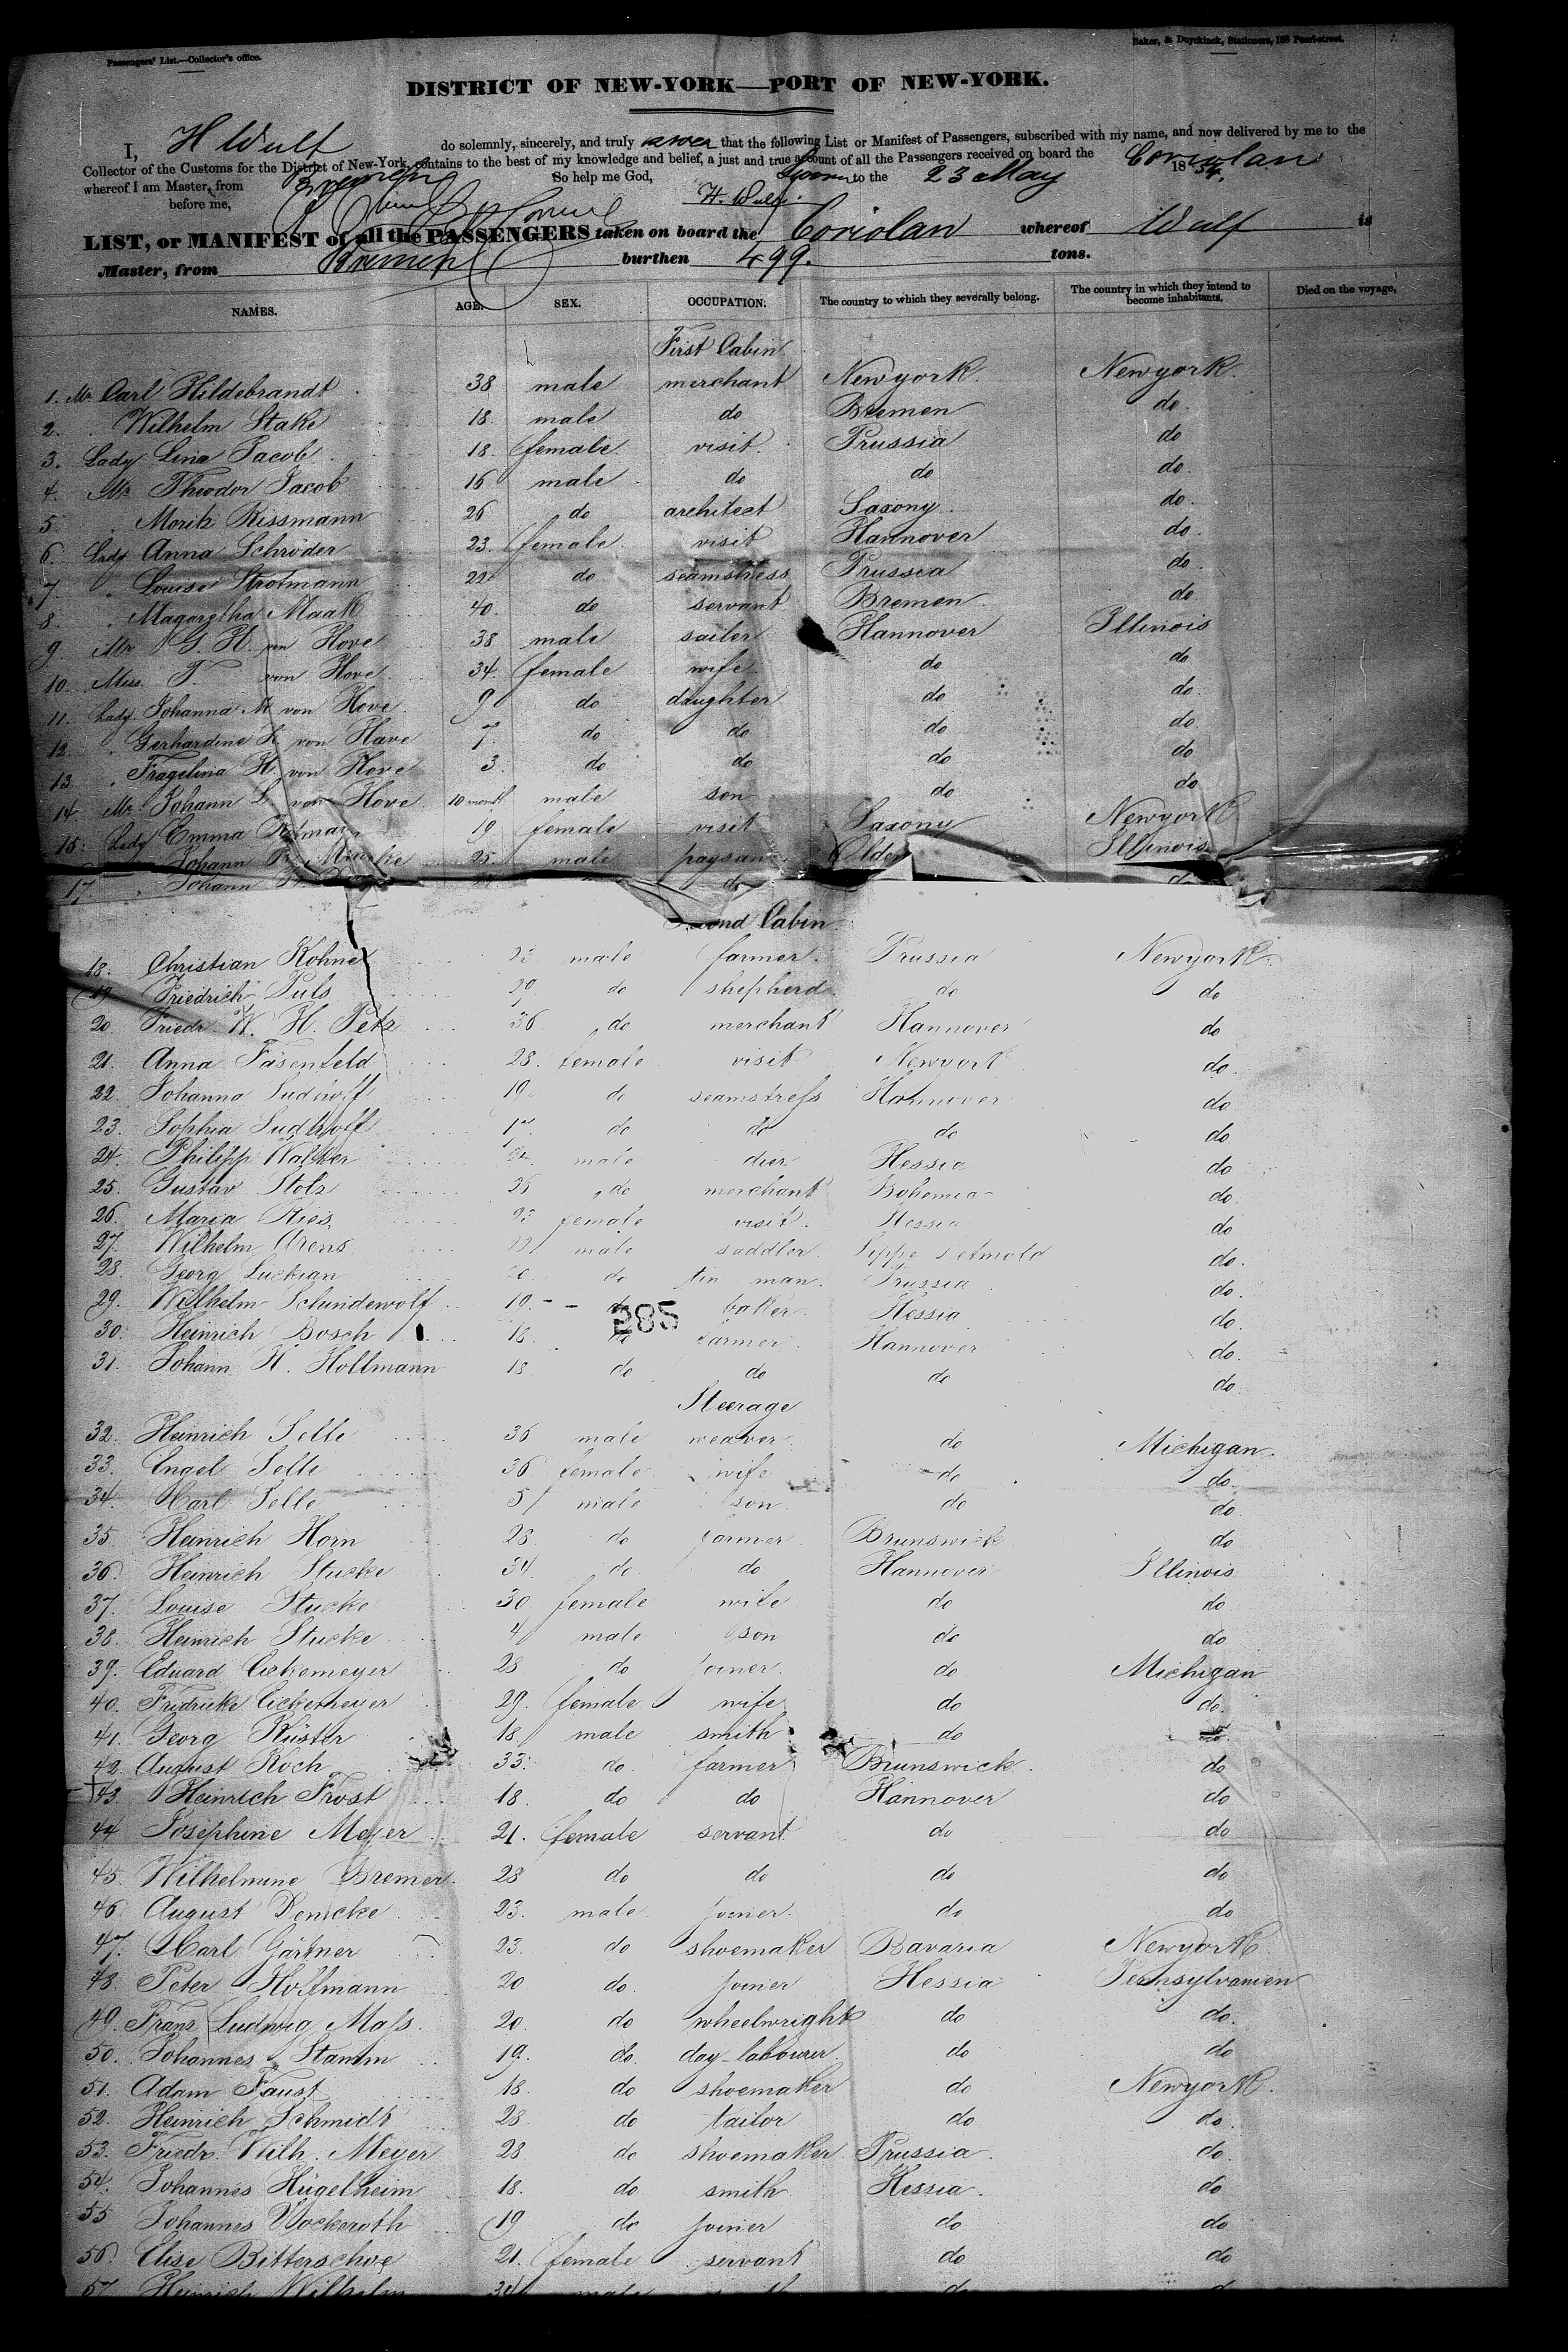 Passengers' List.—Collector's office.
Baker, & Duyckinck, Stationers, 158 Pearl-street.
DISTRICT OF NEW-YORK—PORT OF NEW-YORK.
I, H Wulf do solemnly, sincerely, and truly swear that the following List or Manifest of Passengers, subscribed with my name, and now delivered by me to the
Collector of the Customs for the District of New-York, contains to the best of my knowledge and belief, a just and true account of all the Passengers received on board the Coriolan
whereof I am Master, from Bremen
So help me God,
Sworn to the 23 May 1854.
before me, H. Wulf
LIST, or MANIFEST of all the PASSENGERS taken on board the Coriolan whereof Wulf is
Master, from Bremen burthen 499. tons.
NAMES. AGE. SEX. OCCUPATION. The country to which they severally belong. The country in which they intend to become inhabitants. Died on the voyage,
First Cabin
1. Mr. Carl Hildebrandt 38 male merchant Newyork. Newyork.
2. Wilhelm Stake 18. male do Bremen do.
3. Lady Lina Jacob 18. female visit. Prussia do
4. Mr Theodor Jacob 16 male do do do.
5. " Moritz Rissmann 26 do architect Saxony. do.
6. Lady Anna Schröder 23. female. visit Hannover do.
7. " Louise Strotmann 22 do seamstress Prussia do.
8. " Magaretha Maak 40. do servant Bremen. do
9. Mr G. H. von Hove 38 male sailer Hannover Illinois
10. Miss. T. von Hove 34. female wife. do do
11. Lady. Johanna M von Hove 9 do daughter do do.
12. " Gerhardine H. von Have 7. do do do do.
13. " Fragelina H. von Hove 3. do do do do
14. Mr. Johann L. von Hove. 10 month. male son do do
15. Lady Emma 19. female visit Saxony Newyork
Johann 25. male paysan Illinois
17. " Johann do do
Cabin.
18. Christian Kohne male farmer. Prussia Newyork.
19 Friedrich Puls 29. do shepherd. do do
20. Friedr. W. H. Petz 36 do merchant Hannover do
21. Anna Fasenfeld 28. female visit Newyork do.
22. Johanna Sudholf 19. do seamstress Hannover do
23. Sophia Sudholf do do do do
24. Philipp Walker male dier Hessia do
25. Gustav Stolz 25 do merchant Bohemia do.
26. Maria Ries female visit. Hessia do
27. Wilhelm Arens male saddler. Lippe Detmold do.
28. Georg Luckian do tin-man. Prussia do.
29. Wilhelm Schindewolf 19. do baker Hessia do.
285
30. Heinrich Bosch 18. do farmer. Hannover do.
31. Johann H. Hollmann 18 do do do do.
Steerage
32. Heinrich Selle 36 male weaver. do Michigan.
33. Engel Selle 36 female wife do do.
34. Carl Selle 5 male son. do do.
35. Heinrich Horn 28. do farmer. Brunswick. do
36. Heinrich Stucke 34. do do. Hannover Illinois.
37. Louise Stucke 30. female wife do do
38. Heinrich Stucke 4 male son do do
39. Eduard Eickemeyer 28 do joiner. do Michigan
40. Fridricke Eickemeyer 29. female wife do do.
41. Georg Küster 18 male smith do do
42. August Koch 33. do. farmer Brunswick. do
43. Heinrich Frost 18. do do Hannover do
44 Josephine Meyer 21. female servant. do do
45. Wilhelmine Bremer. 28 do do do do
46. August Denicke 23. male joiner. do do
47. Carl Gärtner 23. do shoemaker Bavaria Newyork.
48. Peter Hoffmann 20 do. joiner Hessia Pennsylvanien
49. Franz Ludwig Mass. 20. do wheelwright do do.
50. Johannes Stamm 19. do. day-labourer. do do
51. Adam Faust 18. do shoemaker do Newyork.
52. Heinrich Schmidt 28. do tailor do do.
53. Friedr. Wilh. Meyer 28 do shoemaker Prussia. do.
54. Johannes Hügelheim 18. do smith. Hessia. do
55 Johannes Vockeroth 19 do joiner do do
56. Elise Bitterschoe 21. female servant do do
57. Heinrich Wilhelm 34 male do